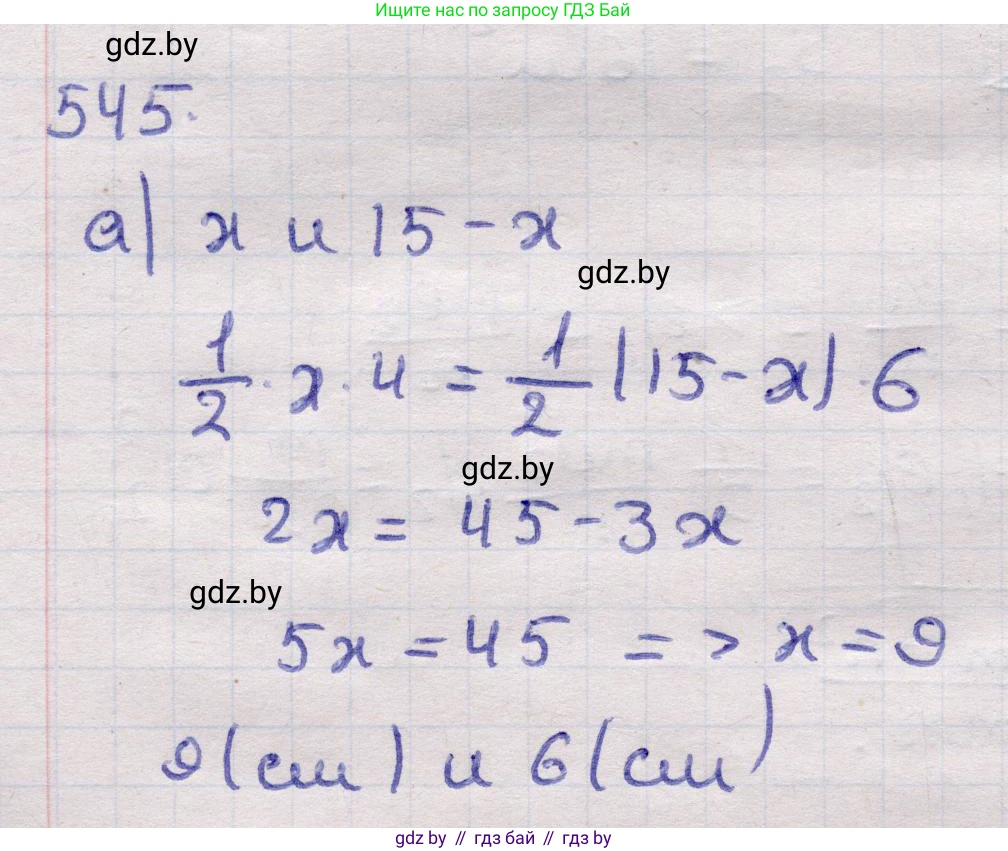 Ищите нас по запросу ГДЗ Бай
gdz.by
545.
а) x и 15 - x
gdz.by
1/2 · x · 4 = 1/2 (15 - x) · 6
gdz.by
2x = 45 - 3x
gdz.by
5x = 45 => x = 9
9 (см) и 6 (см)
gdz.by // гдз бай // gdz by